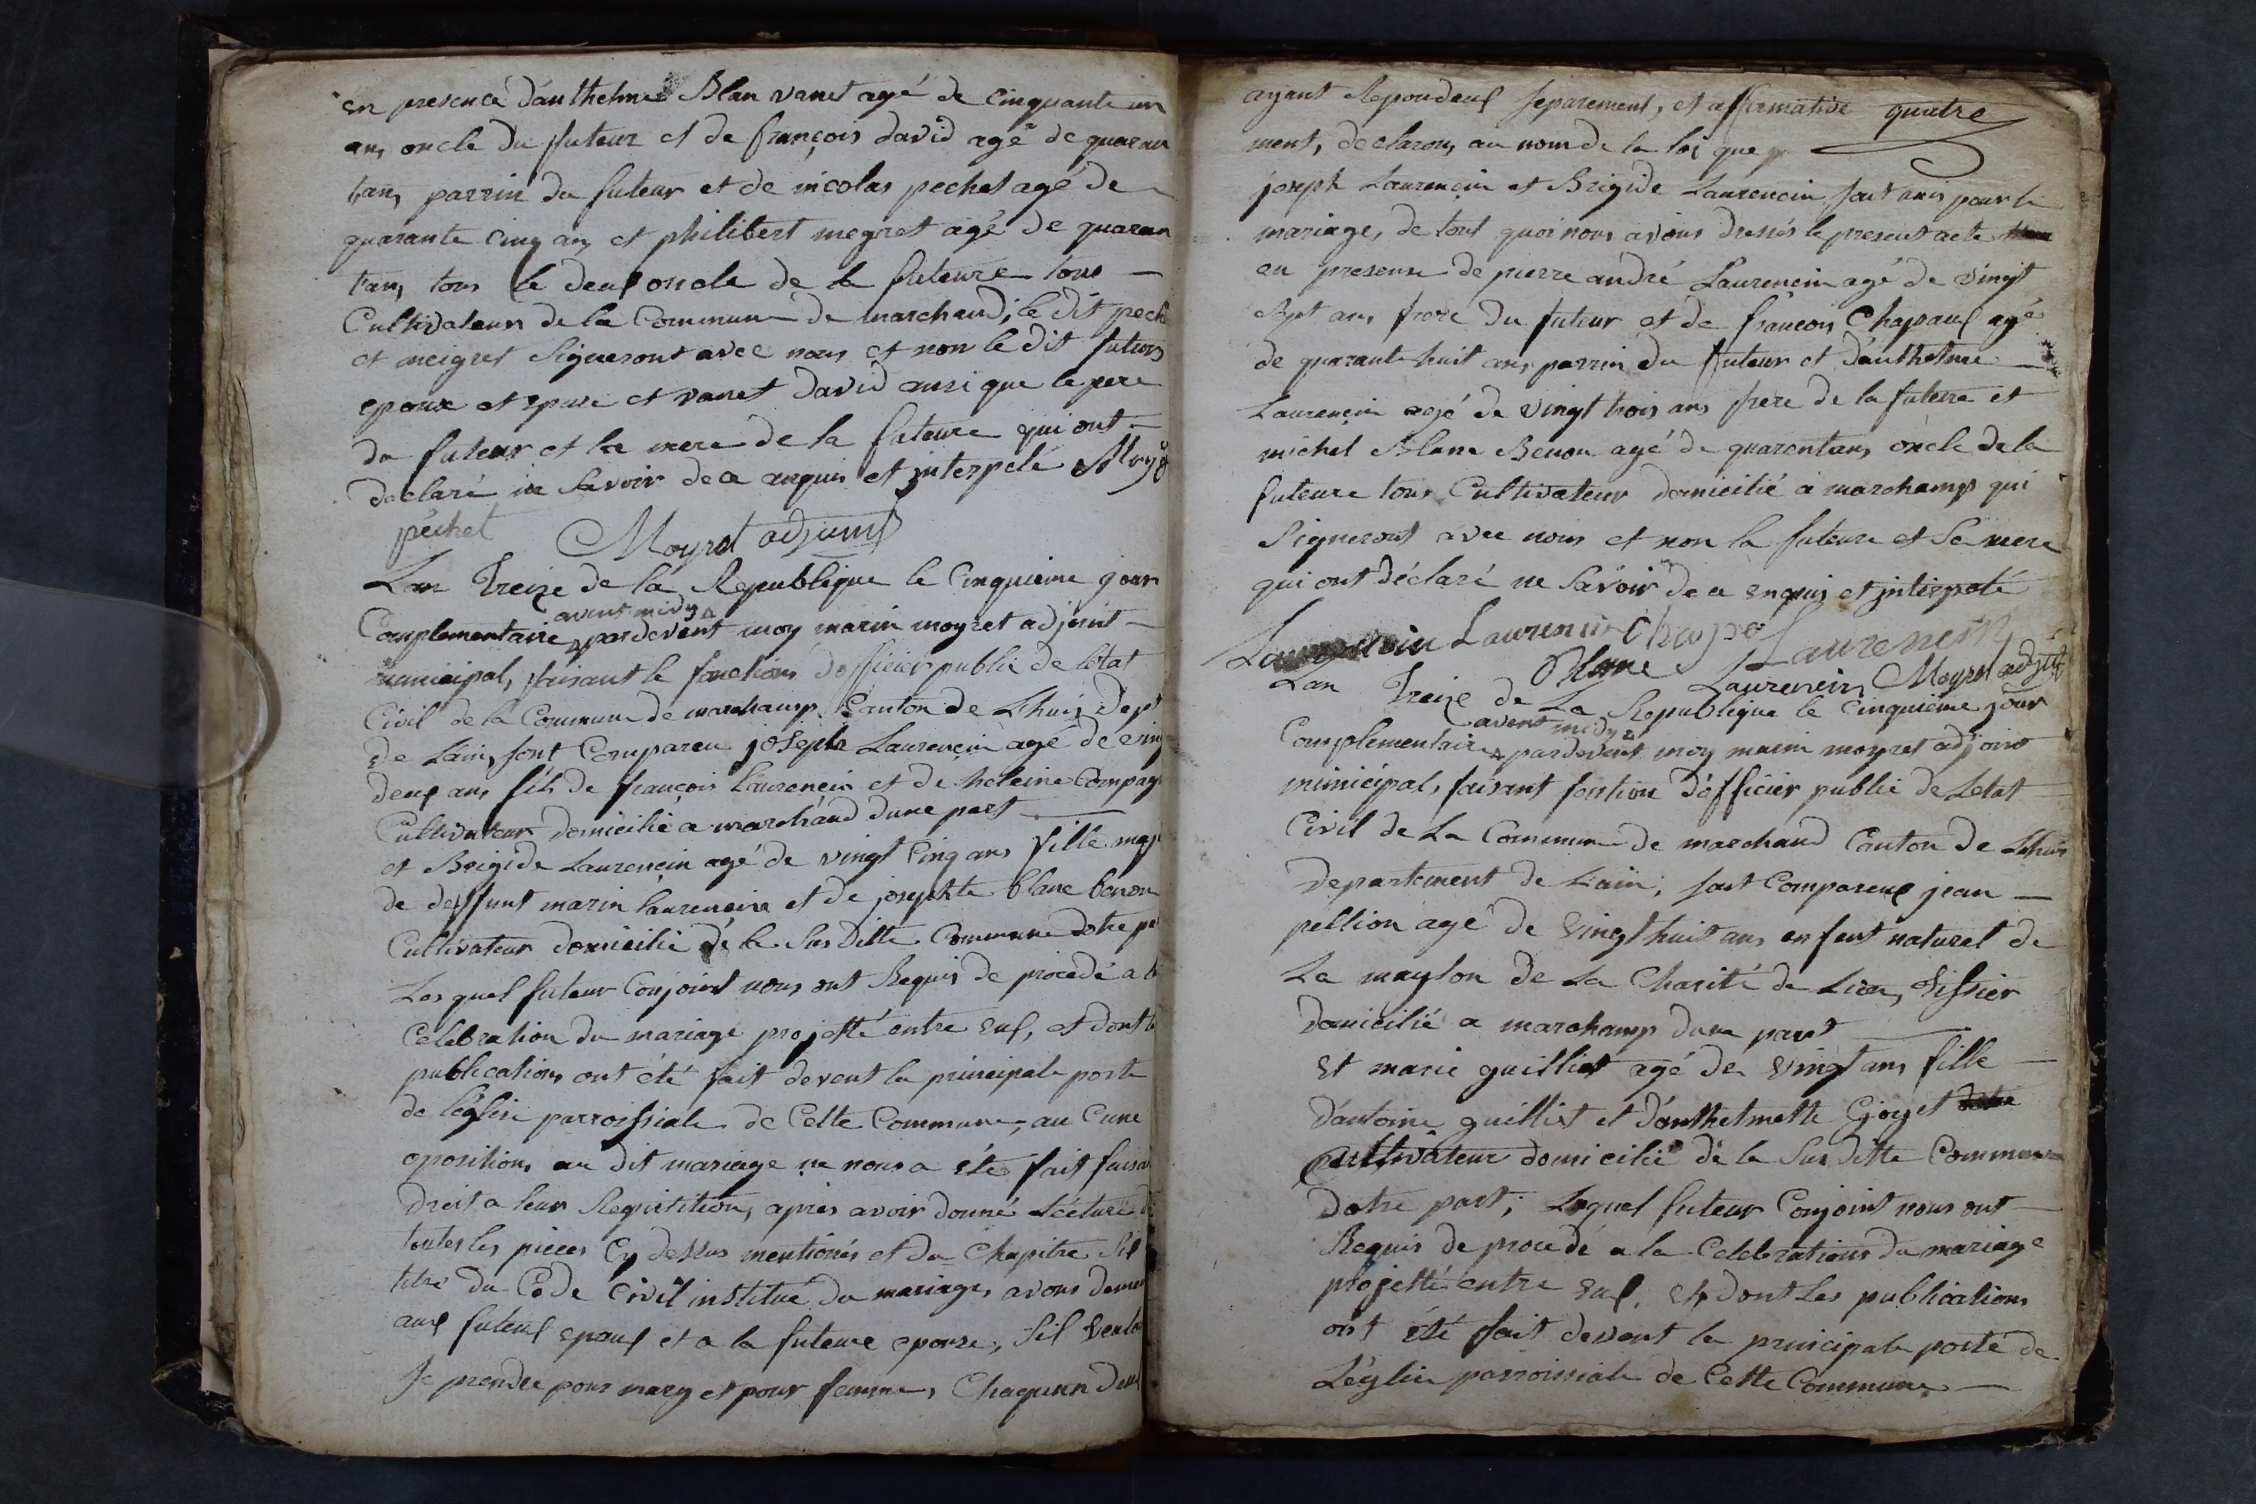 en presence d'anthelme Blan vanet agé de cinquante un
ans oncle du futeur et de françois david agé de quaran
tans parrin du futeur et de nicolas pechet agé de
quarante cinq ans et philibert megret agé de quaran
tans tous le deux oncle de la futeure tous
Cultivateurs de la Commune de marchand; le dit peche
et meigret Signeront avec nous et non le dit futurs
epoux et epouse et vanet david ausi que le pere
du futeur et la mere de la futeure qui ont
declaré ne Savoir de ce enquis et interpelé
pechet Moyret adjoint
Lan Treize de la Republique le Cinquieme jour
avent midy
Complementaire pardevent moy marin moyret adjoint
municipal, faisant le fonctions d'officier public de letat
Civil de la Commune de marchamp Canton de Lhuis Dept
de Lain, sont Compareu joseph Laurencin agé de vingt
deux ans fils de françois Laurencin et de heleine Compag
Cultivateur domicilié a marchand dune part
et Brigide Laurencin agé de vingt Cinq ans fille maj
de deffunt marin laurencin et de josephte blanc benon
Cultivateur domicilié de la Sus ditte Commune dotre pa
Les quel futeur Conjoint nous ont Requis de procedé a la
Celebration du mariage projetté entre eux, et dont le
publications ont été fait devent la principale porte
de l'eglise parroissiale de Cette Commune, au Cune
oposition au dit mariage ne nous a été fait faisan
droit a leur Requitition, apres avoir donné Lecture d
toutes les pieces Cy dessus mentionés et du Chapitre Sil
titre du Code Civil institué du mariage, avons deman
aux futeux epoux et a la futeure epouse, Sil veule
Se prendre pour mary et pour femme, Chaquun deux
ayant Repondeux separement, et affirmative quatre
ment, declarons au nom de la loi que
joseph Laurencin et Brigide Laurencin sont unis pour le
mariage, de tout quoi nous avons dressés le present acte
en presense de pierre andré Laurencin agé de vingt
Sept ans frere du futeur et de françois Chapaux agé
de quarante huit ans parrin du futeur et d'anthelme
Laurencin agé de vingt trois ans frere de la futeure et
michel Blanc Benon agé de quarentans oncle de la
futeure tous Cultivateur domicilié a marchamp qui
Signeront avec nous et non la futeure et Sa mere
qui ont déclaré ne Savoir de ce enquis et interpelé
Laurencin Laurencin Chapo Laurencin
Blanc Laurencin Moyret adjt
Lan Treize de La Republique le Cinquieme jour
avent midy
Complementaire pardevent moy marin moyret adjoint
municipal, faisant fontion d'officier public de Letat
Civil de La Commune de marchand Canton de Lhuis
departement de Lain; sont Compareux jean
pellion agé de vingt huit ans enfent naturel de
La mayson de La Charité de Lion, Tissier
domicilié a marchamp dune part
Et marie guilliet agé de vingt ans fille
d'antoine guilliet et d'anthelmette Goyet
Cultivateur domicilié de la Sus ditte Commune
dotre part; Lequel futeur Conjoint nous ont
Requis de procedé a la Celebrations du mariage
projetté entre eux, et dont Les publications
ont été fait devent la principale porte de
Léglise parroissiale de Cette Commune